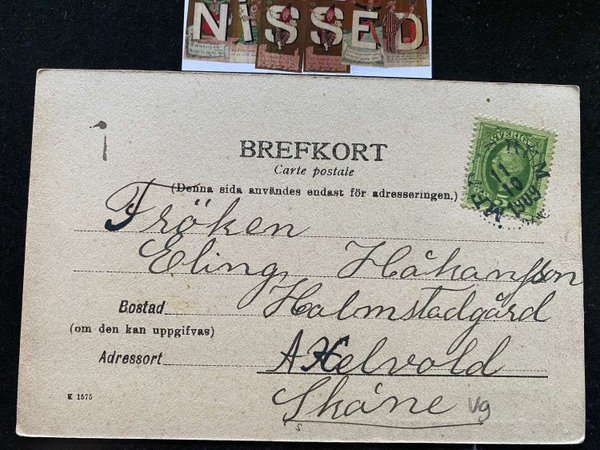 NISSED
BREFKORT
Carte postale
(Denna sida användes endast för adresseringen.)
SVERIGE
11
10
1903
Fröken
Eling Håkansson
Bostad Halmstadgård
(om den kan uppgifvas)
Adressort Axelvold
Skåne vg
K 1575